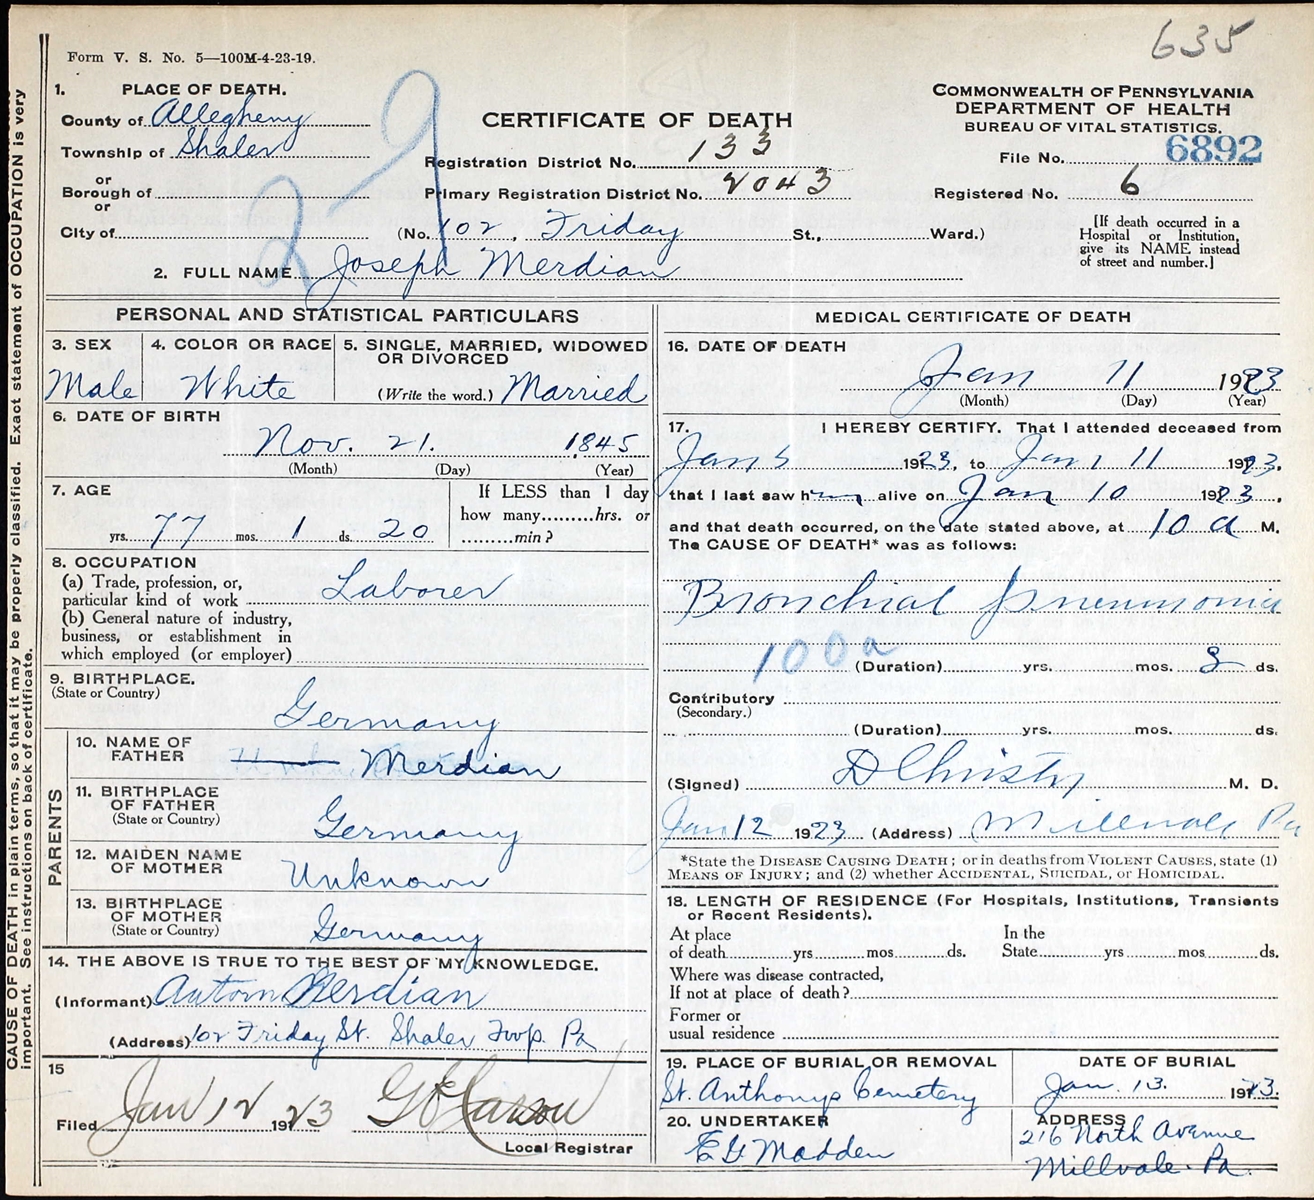 635
Form V. S. No. 5—100M-4-23-19.
1. PLACE OF DEATH.
County of Allegheny
Township of Shaler
or
Borough of
or
City of
CERTIFICATE OF DEATH
Registration District No. 133
Primary Registration District No. 2043
(No. 102, Friday St., Ward.)
COMMONWEALTH OF PENNSYLVANIA
DEPARTMENT OF HEALTH
BUREAU OF VITAL STATISTICS.
File No. 6892
Registered No. 6
[If death occurred in a
Hospital or Institution,
give its NAME instead
of street and number.]
2. FULL NAME Joseph Merdian
PERSONAL AND STATISTICAL PARTICULARS
3. SEX
Male
4. COLOR OR RACE
White
5. SINGLE, MARRIED, WIDOWED
OR DIVORCED
(Write the word.) Married
6. DATE OF BIRTH
Nov. 21. 1845
(Month) (Day) (Year)
7. AGE
yrs. 77 mos. 1 ds. 20
If LESS than 1 day
how many........hrs. or
........min?
8. OCCUPATION
(a) Trade, profession, or,
particular kind of work Laborer
(b) General nature of industry,
business, or establishment in
which employed (or employer)
9. BIRTHPLACE.
(State or Country)
Germany
PARENTS
10. NAME OF
FATHER Merdian
11. BIRTHPLACE
OF FATHER
(State or Country) Germany
12. MAIDEN NAME
OF MOTHER Unknown
13. BIRTHPLACE
OF MOTHER
(State or Country) Germany
14. THE ABOVE IS TRUE TO THE BEST OF MY KNOWLEDGE.
(Informant) Merdian
(Address) 102 Friday St. Shaler Twp. Pa
15
Filed Jan 12 1923
Local Registrar
MEDICAL CERTIFICATE OF DEATH
16. DATE OF DEATH
Jan 11 1923
(Month) (Day) (Year)
17. I HEREBY CERTIFY. That I attended deceased from
Jan 5 1923, to Jan 11 1923.
that I last saw him alive on Jan 10 1923.
and that death occurred, on the date stated above, at 10 a M.
The CAUSE OF DEATH* was as follows:
Bronchial Pneumonia
100a
(Duration) yrs. mos. 8 ds.
Contributory
(Secondary.)
(Duration) yrs. mos. ds.
(Signed) D Christy M. D.
Jan 12 1923 (Address) Millvale Pa
*State the DISEASE CAUSING DEATH; or in deaths from VIOLENT CAUSES, state (1)
MEANS OF INJURY; and (2) whether ACCIDENTAL, SUICIDAL, OR HOMICIDAL.
18. LENGTH OF RESIDENCE (For Hospitals, Institutions, Transients
or Recent Residents).
At place
of death yrs mos ds.
In the
State yrs mos ds.
Where was disease contracted,
If not at place of death?
Former or
usual residence
19. PLACE OF BURIAL OR REMOVAL
St. Anthonys Cemetery
DATE OF BURIAL
Jan. 13. 1923.
20. UNDERTAKER
E G Madden
ADDRESS
216 North Avenue
Millvale. Pa.
CAUSE OF DEATH in plain terms, so that it may be properly classified. Exact statement of OCCUPATION is very
important. See instructions on back of certificate.